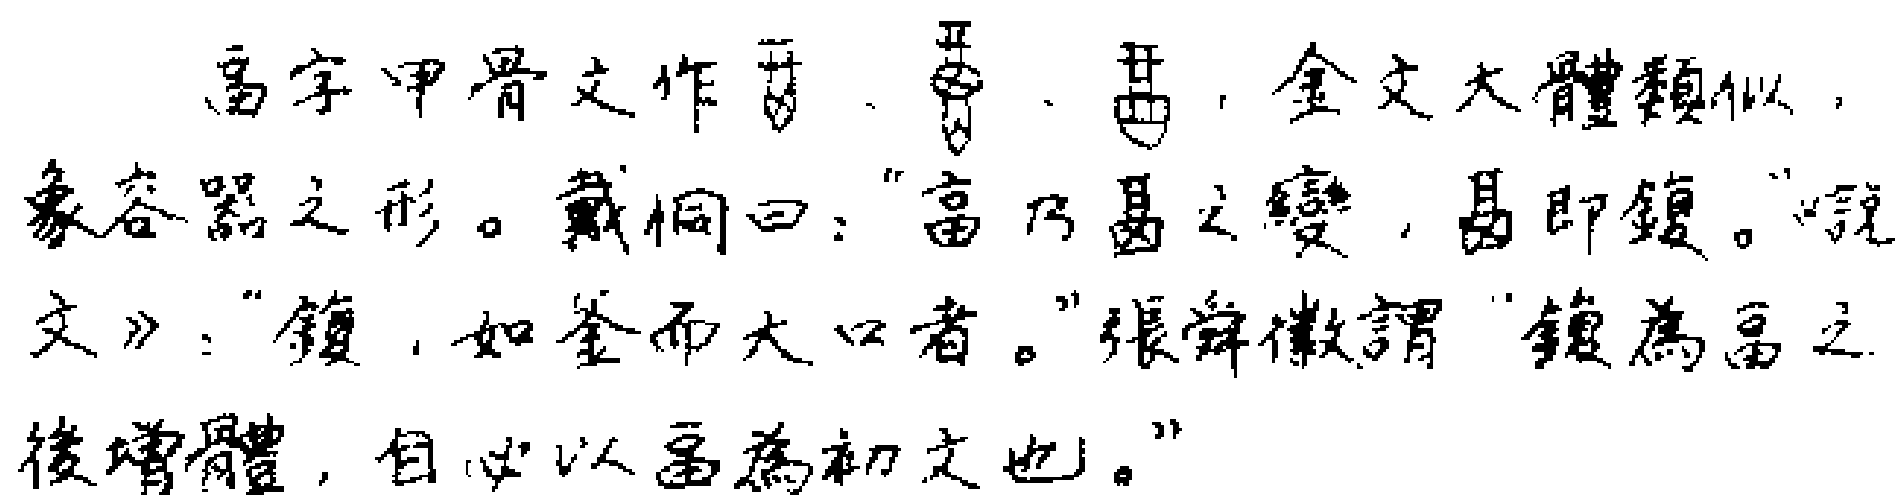 畐字甲骨文作、、，金文大體類似，
象容器之形。戴侗曰："畐乃之變，即鍑。"《說
文》："鍑，如釜而大口者。"張舜徽謂"鍑為畐之
後增體，自必以畐為初文也。"